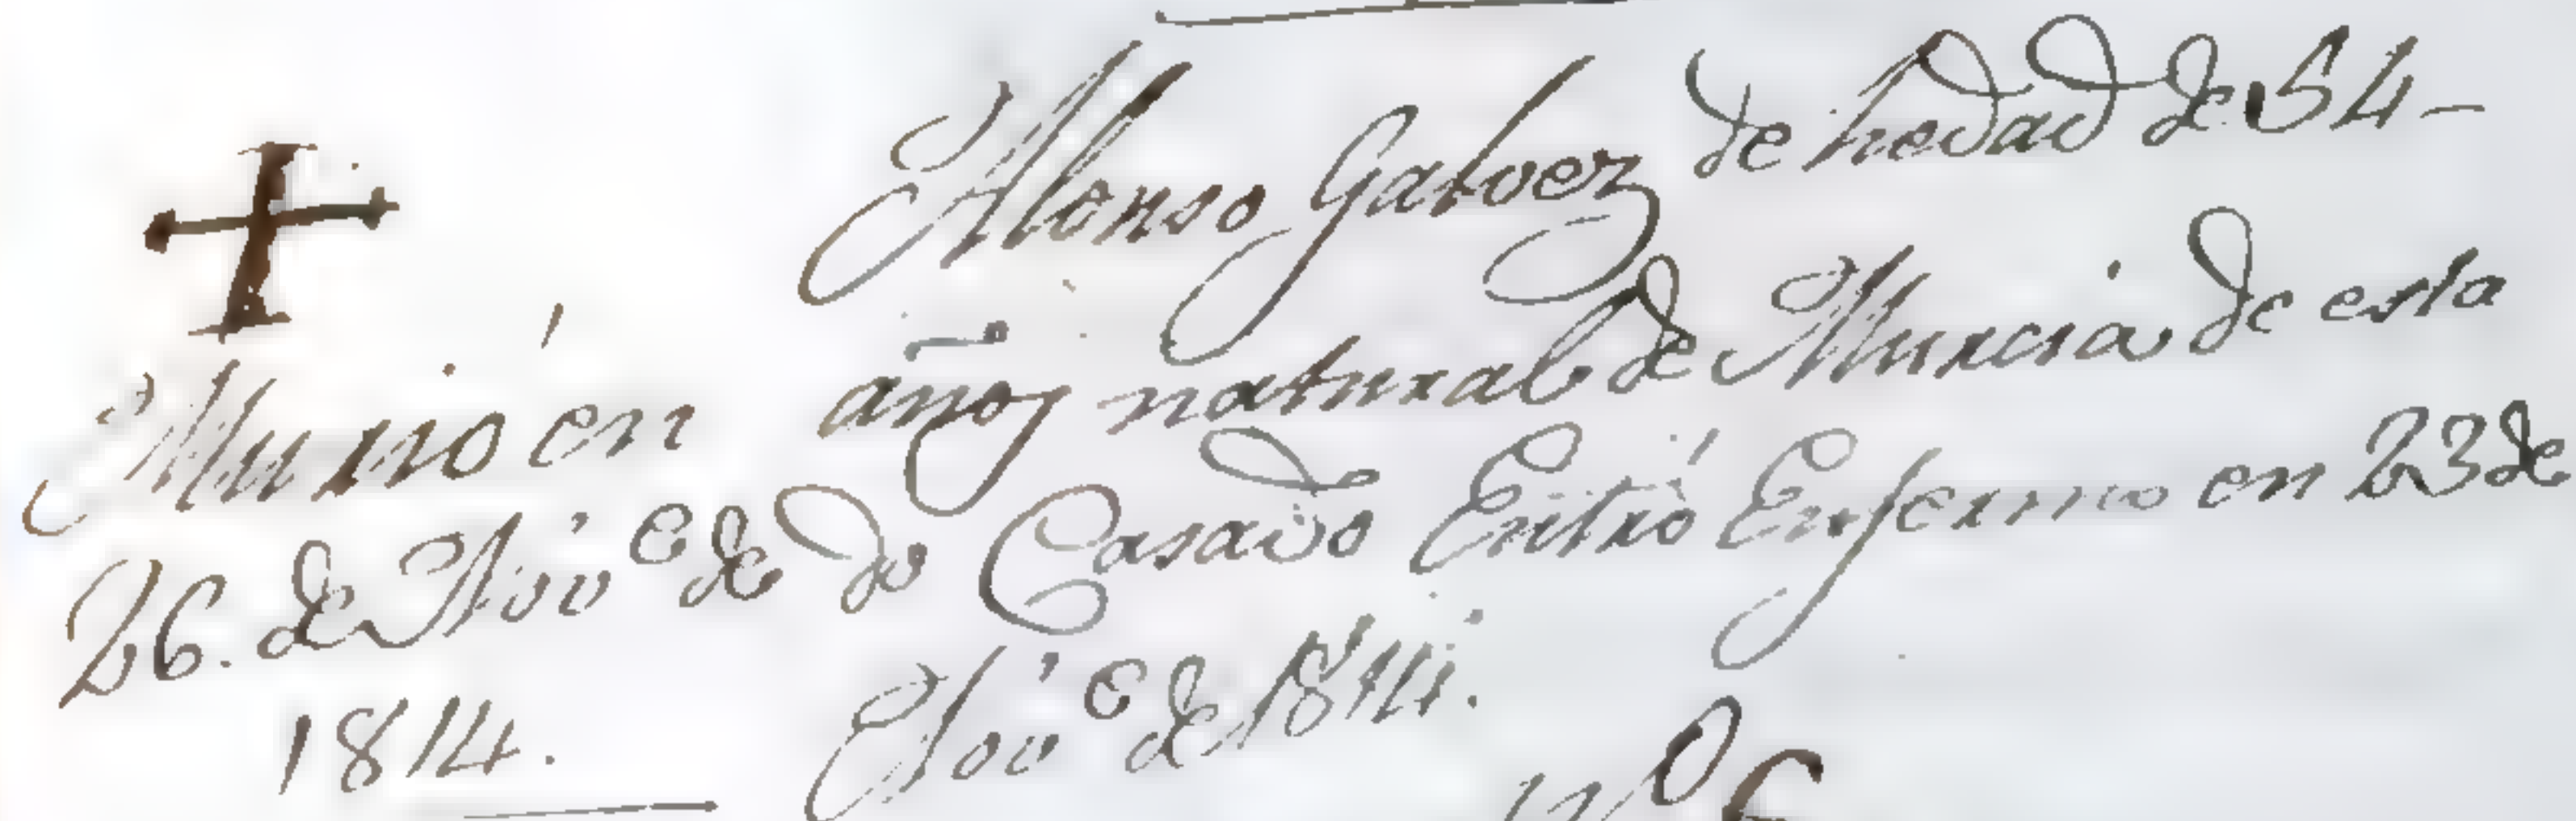 Murió en
26. de Novᵉ de
1814.
Alonso Galvez de hedad de 54-
años natural de Murcia de esta
do Casado Entró Enfermo en 23 de
Novᵉ de 1814.